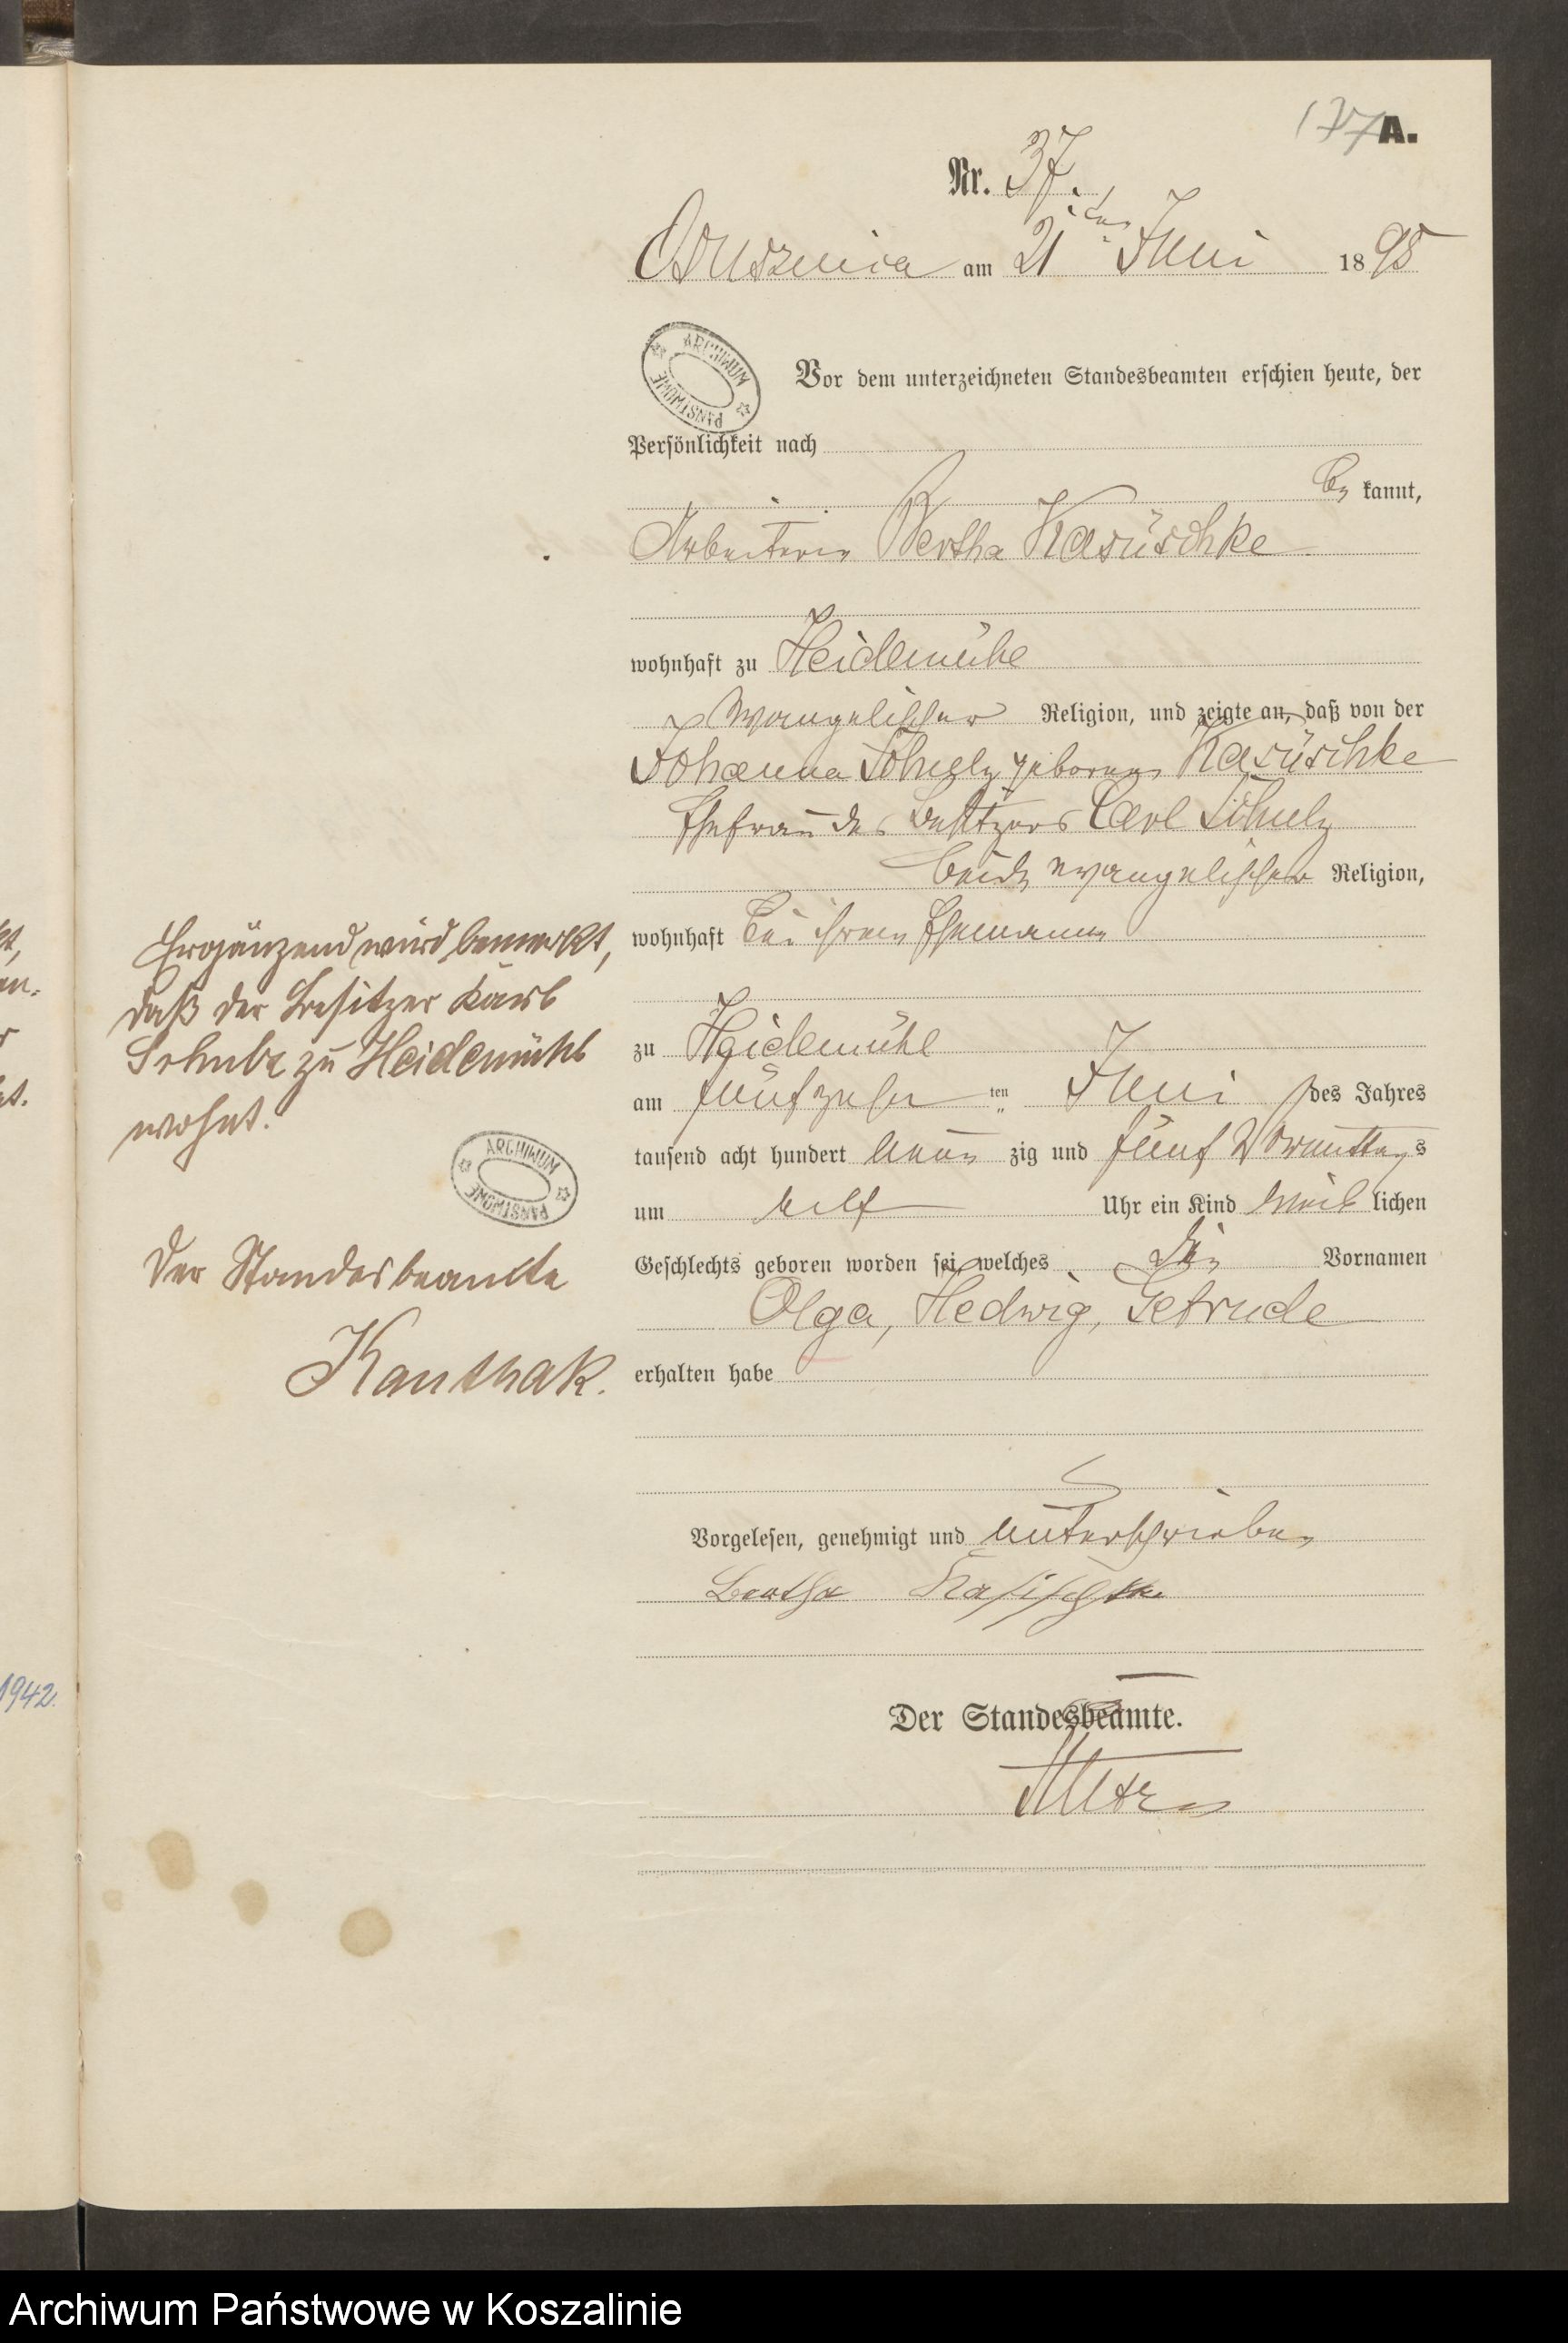 177 A.
Nr. 37.
Ossusznica am 21ten Juni 1895
Vor dem unterzeichneten Standesbeamten erschien heute, der
Persönlichkeit nach
be kannt,
Arbeiterin Bertha Kasüschke
wohnhaft zu Heidemühe
evangelischer Religion, und zeigte an, daß von der
Johanna Schulz geborenen Kasüschke
Ehefrau des Besitzers Carl Schulz
beide evangelischer Religion,
wohnhaft bei ihrem Ehemann
zu Heidemühl
am fünfzehnten Juni des Jahres
tausend acht hundert neun zig und fünf Vormittags
um elf Uhr ein Kind weib lichen
Geschlechts geboren worden sei, welches die Vornamen
Olga, Hedwig, Getrude
erhalten habe
Vorgelesen, genehmigt und unterschrieben
Bertha Kasischke
Der Standesbeamte.
Ergänzend wird bemerkt,
daß der Besitzer Karl
Schulz zu Heidemühl
wohnt.
Der Standesbeamte
Kanthak.
ARCHIWUM PAŃSTWOWE
ARCHIWUM PAŃSTWOWE
1942.
Archiwum Państwowe w Koszalinie